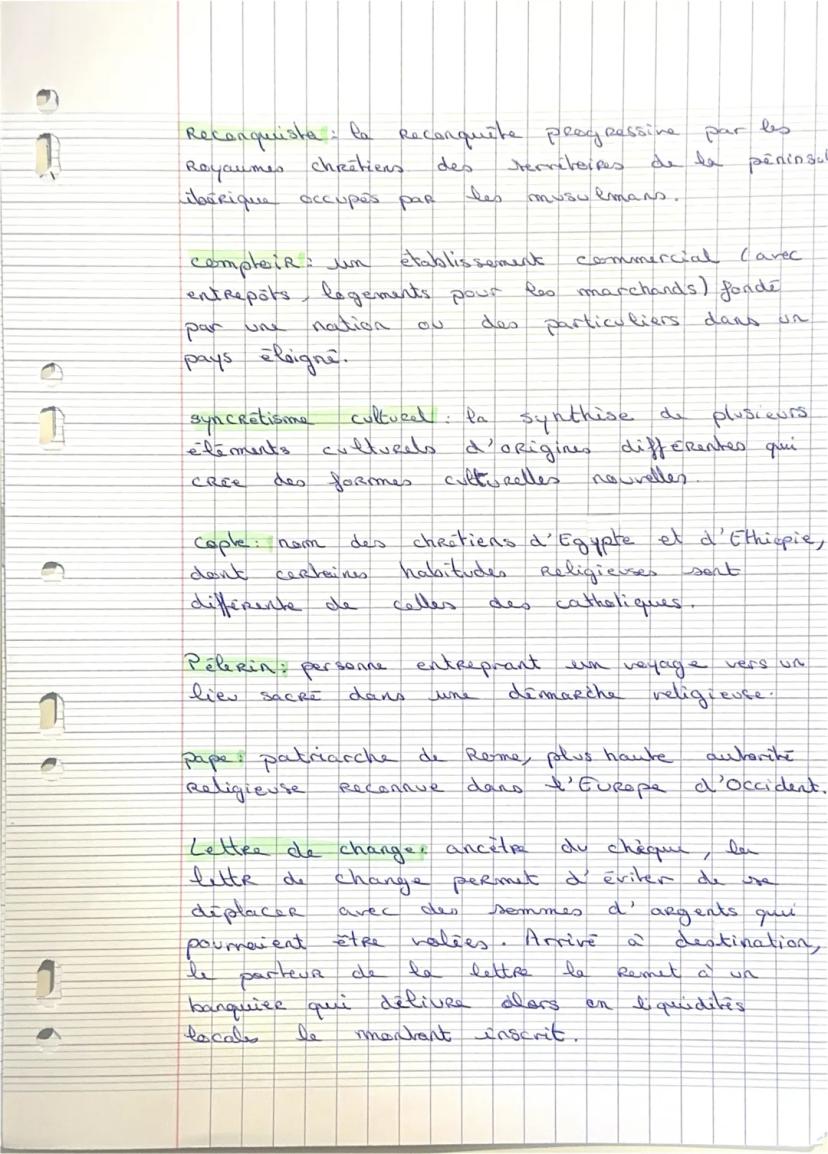 Reconquista : la Reconquête progressive par les
Royaumes chrétiens des territoires de la péninsul
ibérique occupés par les musulmans.
comptoir : un établissement commercial (avec
entrepôts, logements pour les marchands) fondé
par une nation ou des particuliers dans un
pays éloigné.
syncrétisme culturel : la synthise de plusieurs
éléments culturels d'origines différentes qui
crée des formes culturelles nouvelles.
copte : nom des chrétiens d'Egypte et d'Ethiopie,
dont certaines habitudes religieuses sont
différente de celles des catholiques.
Pélerin : personne entreprant un voyage vers un
lieu sacré dans une démarche religieuse.
pape : patriarche de Rome, plus haute autorité
Religieuse reconnue dans l'Europe d'Occident.
Lettre de change : ancêtre du chèque, la
lettr de change permet d'éviter de se
déplacer avec des sommes d'argents qui
pourraient être volées. Arrivé à destination,
le porteur de la lettre la remet à un
banquier qui délivre alors en liquidités
locales le montant inscrit.